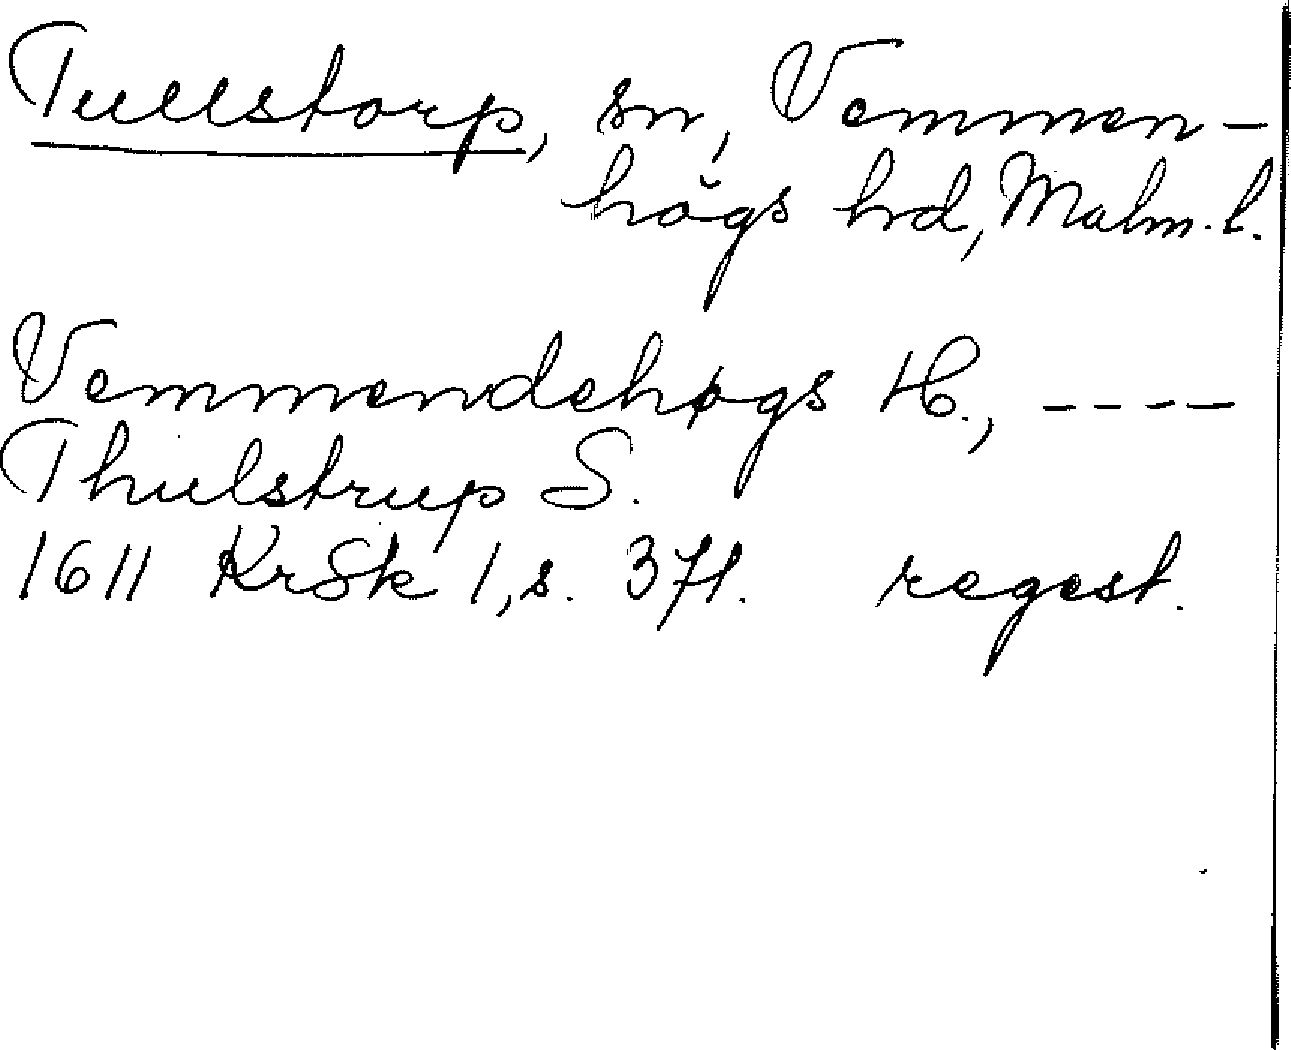 Tullstorp, sn, Vemmen-
högs hrd, Malm. l.
Vemmendehøgs H., ----
Thulstrup S.
1611 KrSk 1, s. 371. regest.